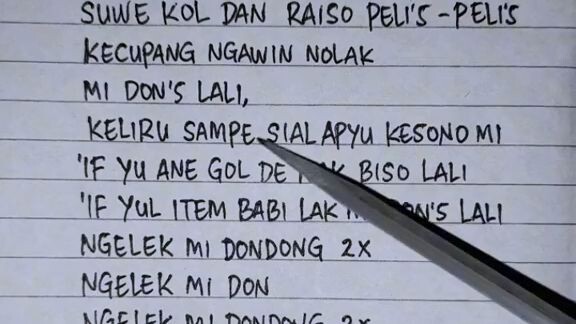 SUWE KOL DAN RAISO PELI'S - PELI'S
KECUPANG NGAWIN NOLAK
MI DON'S LALI,
KELIRU SAMPE SIAL APYU KESONO MI
'IF YU ANE GOL DE BISO LALI
'IF YUL ITEM BABI LAK LALI
NGELEK MI DONDONG 2X
NGELEK MI DON
NGELEK MI DONDONG 2X